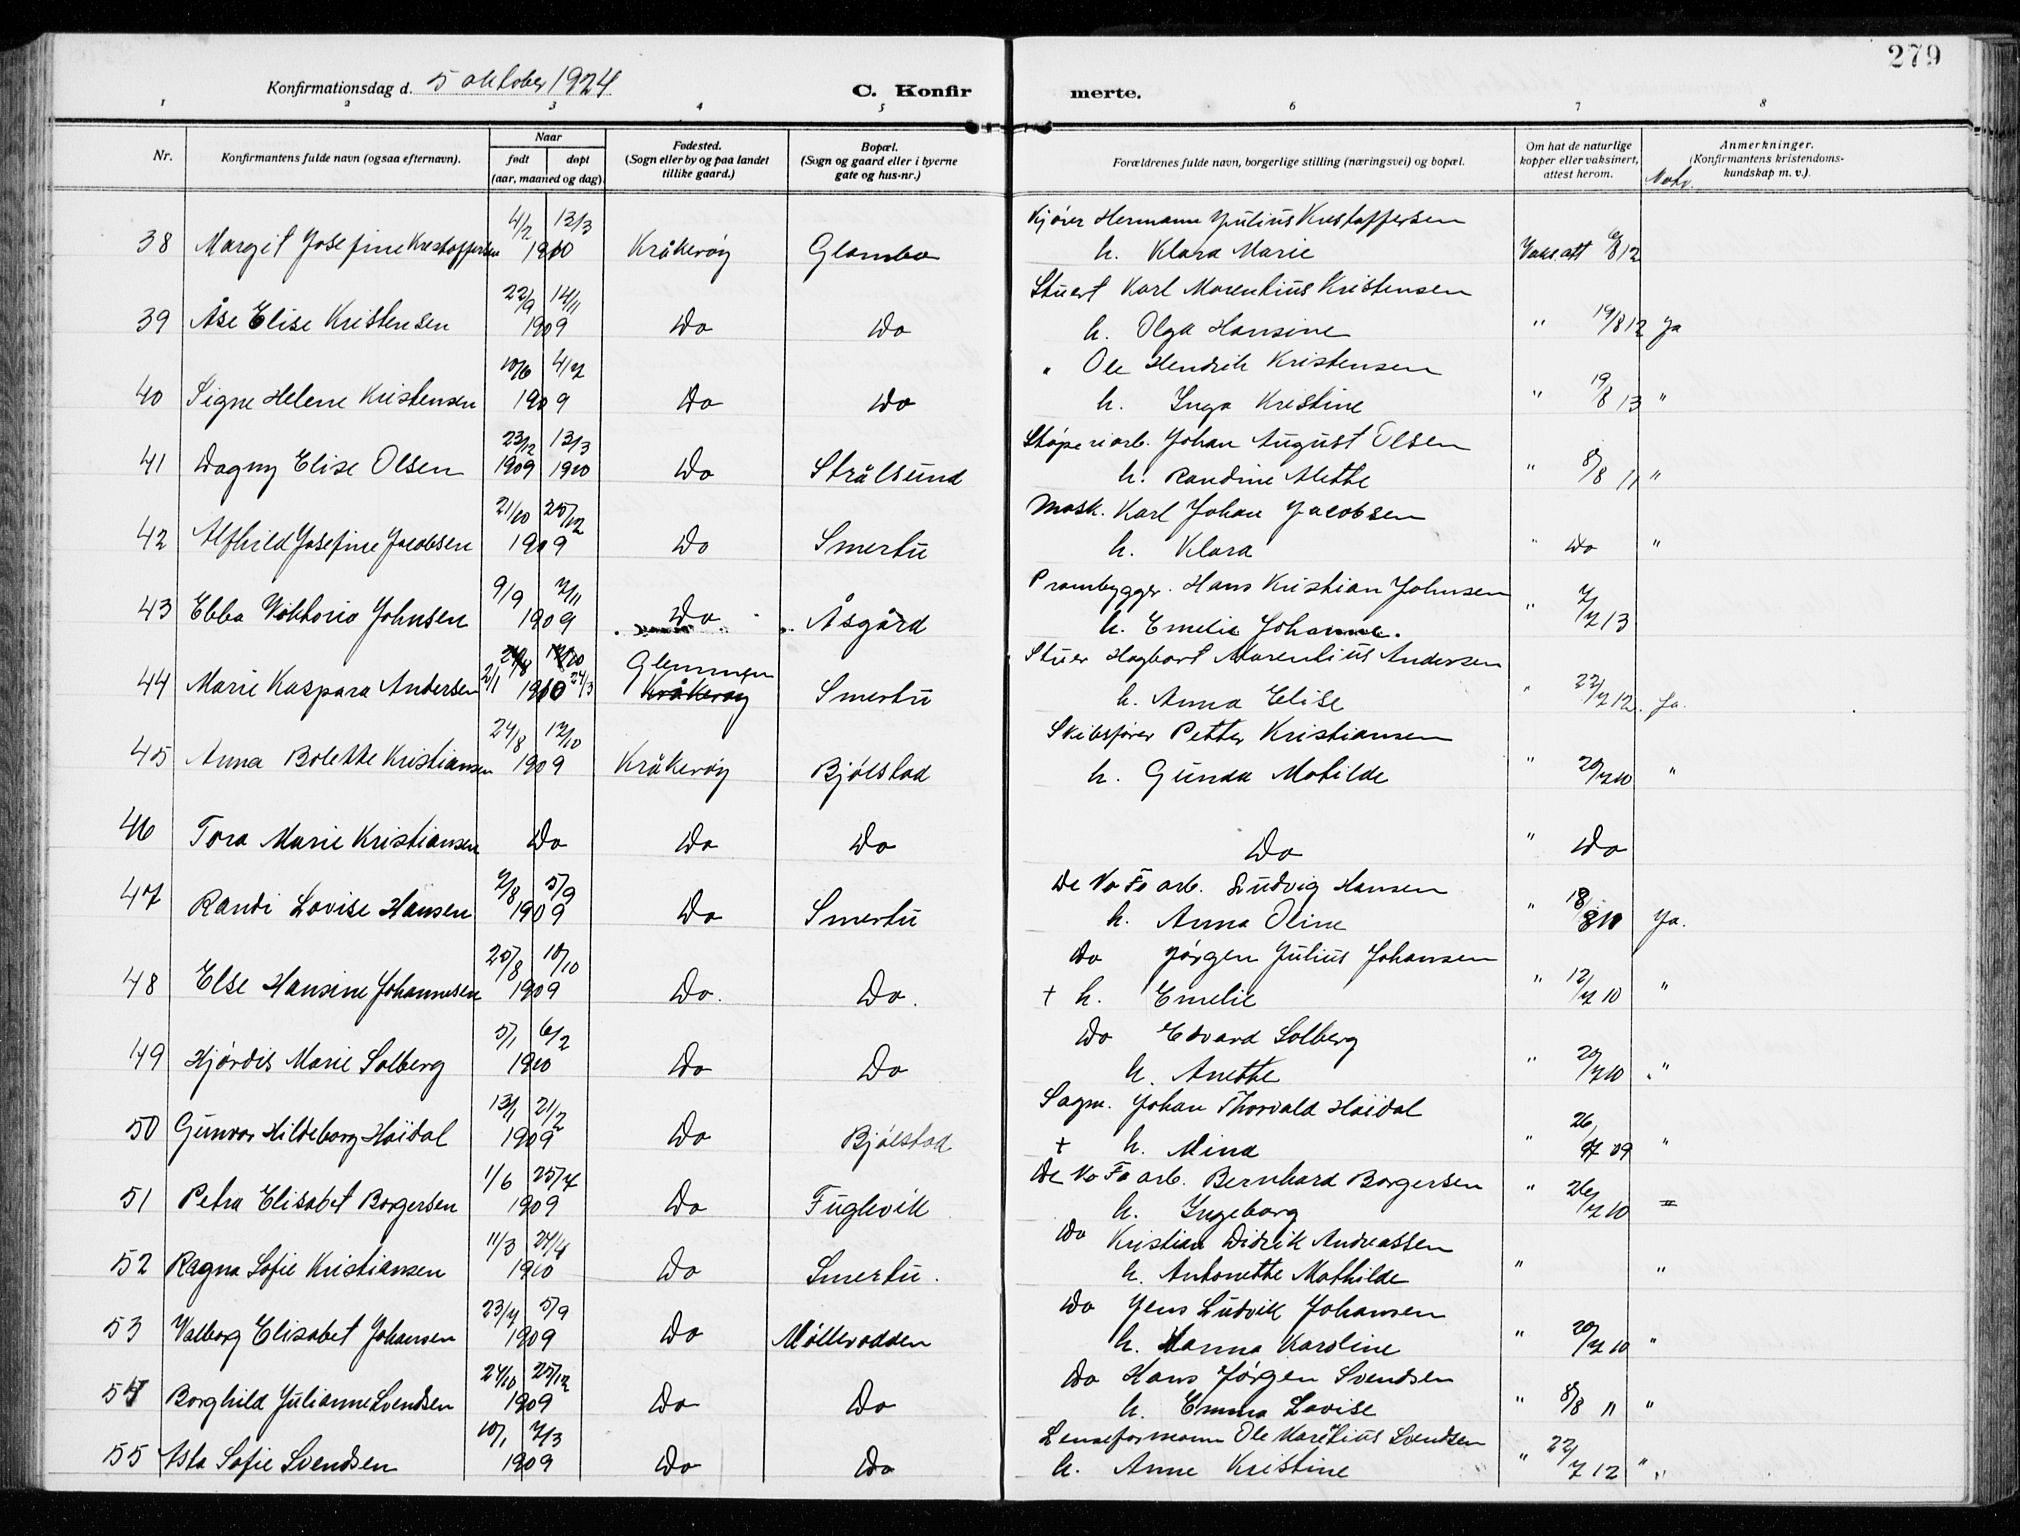 279
Konfirmationsdag d. 5 oktober 1924
C. Konfirmerte.
1 2 3 4 5 6 7 8
Nr.
Konfirmantens fulde navn (ogsaa efternavn).
Naar
født døpt
(aar, maaned og dag).
Fødested.
(Sogn eller by og paa landet
tillike gaard.)
Bopæl.
(Sogn og gaard eller i byerne
gate og hus-nr.)
Forældrenes fulde navn, borgerlige stilling (næringsvei) og bopæl.
Om hat de naturlige
kopper eller vaksinert,
attest herom.
Anmerkninger.
(Konfirmantens kristendoms-
kundskap m. v.).
4/2 13/3 Kjører Hermann Julius Kristoffersen
38 Margit Josefine Kristoffersen 1910 Kråkerøy Glombo h. Klara Marie Vaks. att 6/8 12
22/9 14/11 Stuert Karl Marentius Kristensen
39 Åse Elise Kristensen 1909 Do Do h. Olga Hansine " 19/8 12 Ja
10/6 4/7 " Ole Hendrik Kristensen
40 Signe Helene Kristensen 1909 Do Do h. Inga Kristine " 19/8 13 "
23/12 13/3 Støperiarb. Johan August Olsen
41 Dagny Elise Olsen 1909 1910 Do Strålsund h. Randine Alette " 8/8 11 "
21/10 25/12 Mask. Karl Johan Jacobsen
42 Alfhild Josefine Jacobsen 1909 Do Smertu h. Klara " Do "
9/9 7/11 Prambygger. Hans Kristian Johnsen
43 Ebba Viktoria Johnsen 1909 Do Åsgård h. Emelie Johanne. " 7/7 13
Glemmen Stuer Hagbart Marentius Andersen
44 Marie Kaspara Andersen 1910 24/3 Kråkerøy Smertu h. Anna Elise " 22/7 12. Ja.
24/8 17/10 Skibsfører Petter Kristiansen
45 Anna Bolette Kristiansen 1909 Kråkerøy Bjølstad h. Gunda Matilde " 20/7 10 "
46 Tora Marie Kristiansen Do Do Do Do " Do
7/8 5/9 De No Fo arb. Ludvig Hansen
47 Randi Lovise Hansen 1909 Do Smertu h. Anna Oline " 18/8 10 Ja.
25/8 10/10 Do Jørgen Julius Johansen
48 Else Hansine Johannesen 1909 Do. Do. + h. Emelie " 12/7 10 "
5/1 6/2 Do Edvard Solberg
49 Hjørdis Marie Solberg 1910 Do Do h. Anette " 20/7 10 "
13/1 21/2 Sagm. Johan Thorvald Høidal
50 Gunvor Hildeborg Høidal 1909 Do Bjølstad + h. Mina " 26/7 09 "
1/6 25/7 De No Fo arb. Bernhard Borgersen
51 Petra Elisabet Borgersen 1909 Do Fuglevik h. Ingeborg " 26/7 10 "
11/3 24/4 Do Kristian Didrik Andreassen
52 Ragna Sofie Kristiansen 1910 Do Smertu. h. Antonette Mathilde " "
23/7 5/9 Do Jens Ludvik Johansen
53 Valborg Elisabet Johansen 1909 Do Møllerodden h. Hanna Karoline " 20/7 10 "
24/10 25/12 Do Hans Jørgen Svendsen
54 Borghild Julianne Svendsen 1909 Do Do h. Emma Lovise " 8/8 11 "
10/1 7/3 Lenseformann Ole Maretius Svendsen
55 Asta Sofie Svendsen 1909 Do Do h. Anne Kristine " 22/7 12 "